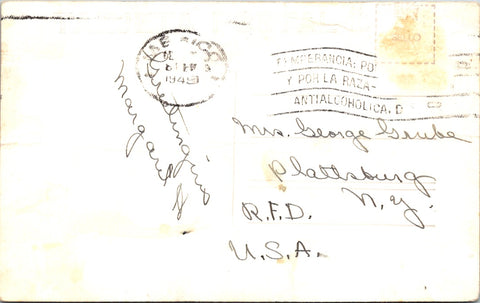 TEMPERANCIA: PO
Y POR LA RAZA-
ANTIALCOHOLICA. D
Greetings
Margaret
Mrs. George Grube
Plattsburg
N.Y.
R.F.D.
U.S.A.